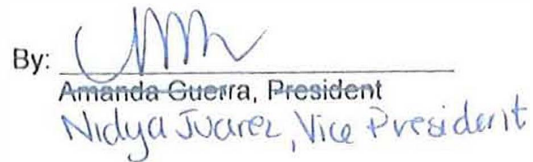 By:
Amanda Guerra, President
Nidya Juarez, Vice President